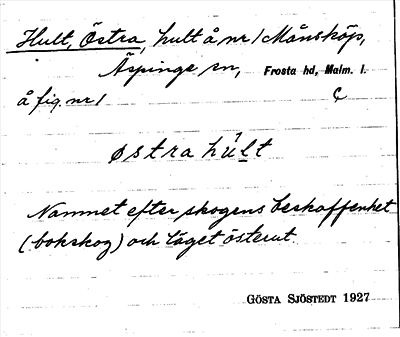 Hult, Östra, hult å nr 1 Månsköp,
Äspinge sn, Frosta hd, Malm. l.
å fig. nr 1 C
østra húlt
Namnet efter skogens beskaffenhet
(bokskog) och läget österut.
GÖSTA SJÖSTEDT 1927